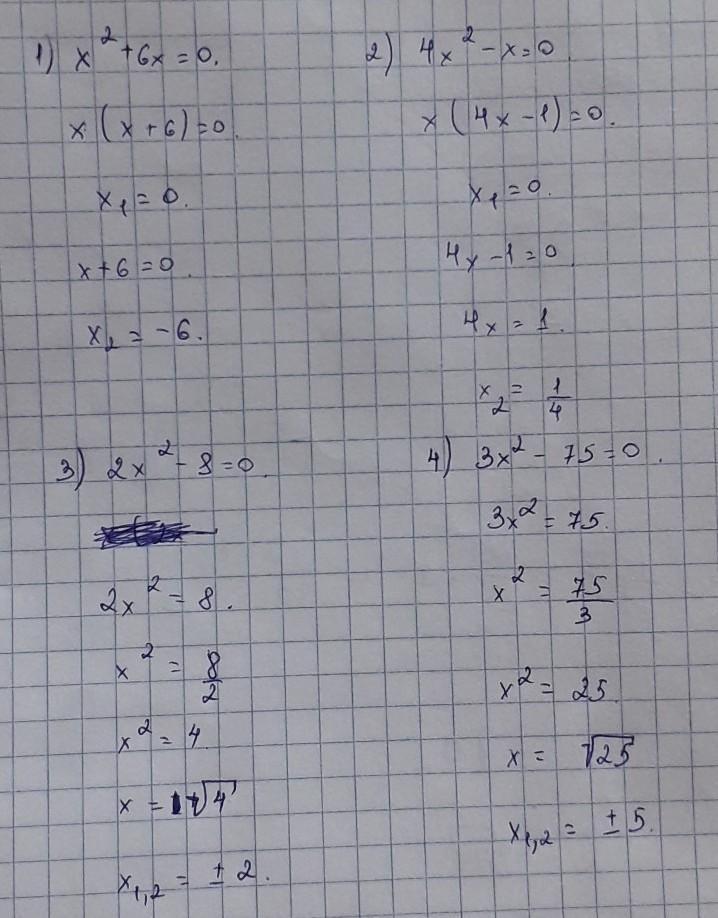 1) x² + 6x = 0.
x (x + 6) = 0.
x₁ = 0.
x + 6 = 0.
x₂ = -6.
2) 4x² - x = 0
x (4x - 1) = 0.
x₁ = 0.
4x - 1 = 0
4x = 1.
x₂ = 1/4
3) 2x² - 8 = 0.
2x² = 8.
x² = 8/2
x² = 4
x = √4
x₁,₂ = ± 2.
4) 3x² - 75 = 0.
3x² = 75.
x² = 75/3
x² = 25
x = √25
x₁,₂ = ± 5.